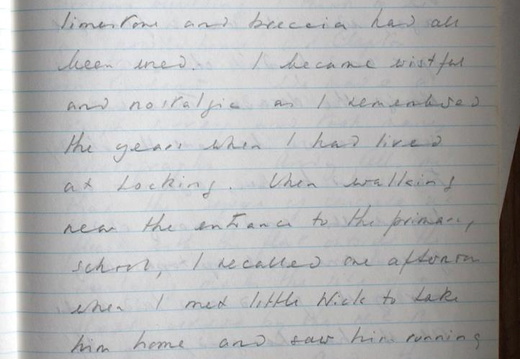 limestone and breccia had all
been used. I became wistful
and nostalgic as I remembered
the years when I had lived
at Locking. When walking
near the entrance to the primary
school, I recalled one afternoon
when I met little Nick to take
him home and saw him running